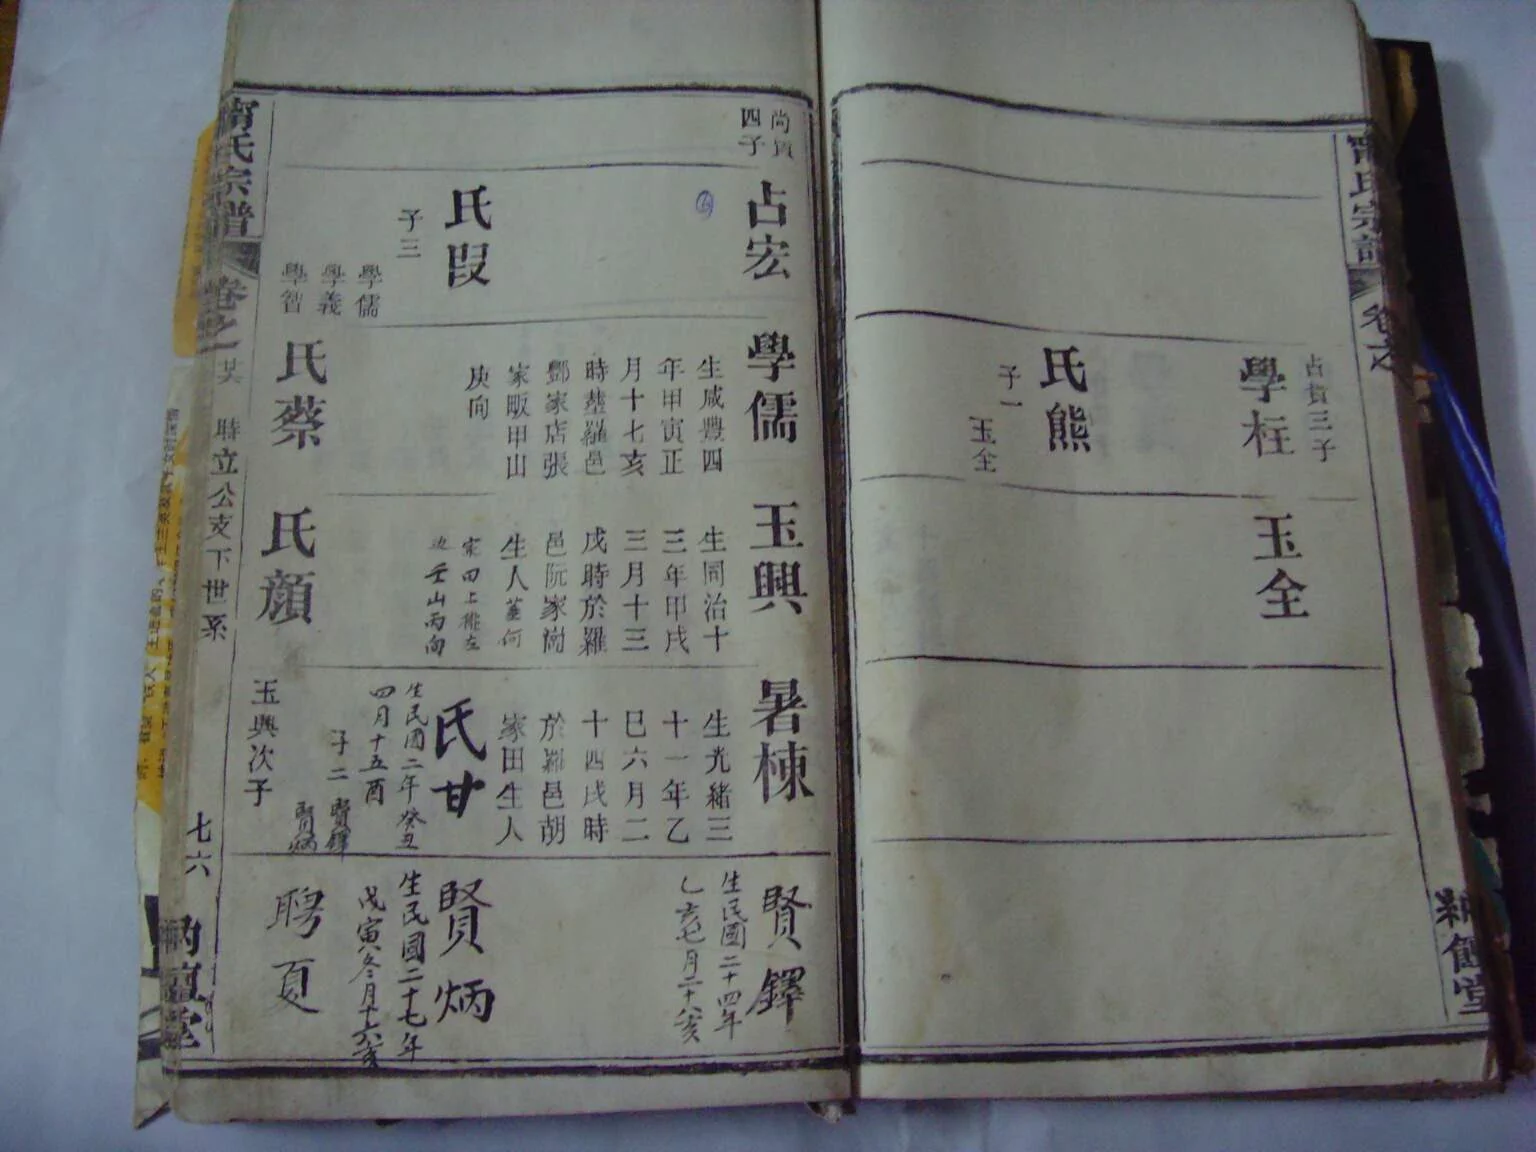 氏宗譜
卷之
占賓三子
學柱
氏熊
子一
玉全
玉全
堂
尚賓
四子
占宏
氏段
子三
學儒
學義
學智
學儒
生咸豐四
年甲寅正
月十七亥
時塟羅邑
鄧家店張
家畈甲山
庚向
氏蔡
玉興
生同治十
三年甲戌
三月十三
戌時於羅
邑阮家崗
生人塟何
家田上排左
边壬山丙向
氏顔
暑棟
生光緒三
十一年乙
巳六月二
十四戌時
於羅邑胡
家田生人
氏甘
生民國二年癸丑
四月十五酉
子二
賢鐸
賢炳
玉興次子
賢鐸
生民國二十四年
乙亥七月二十八亥
賢炳
生民國二十七年
戊寅冬月十六亥
聘夏
氏宗譜
卷之一
時立公支下世系
七六
堂